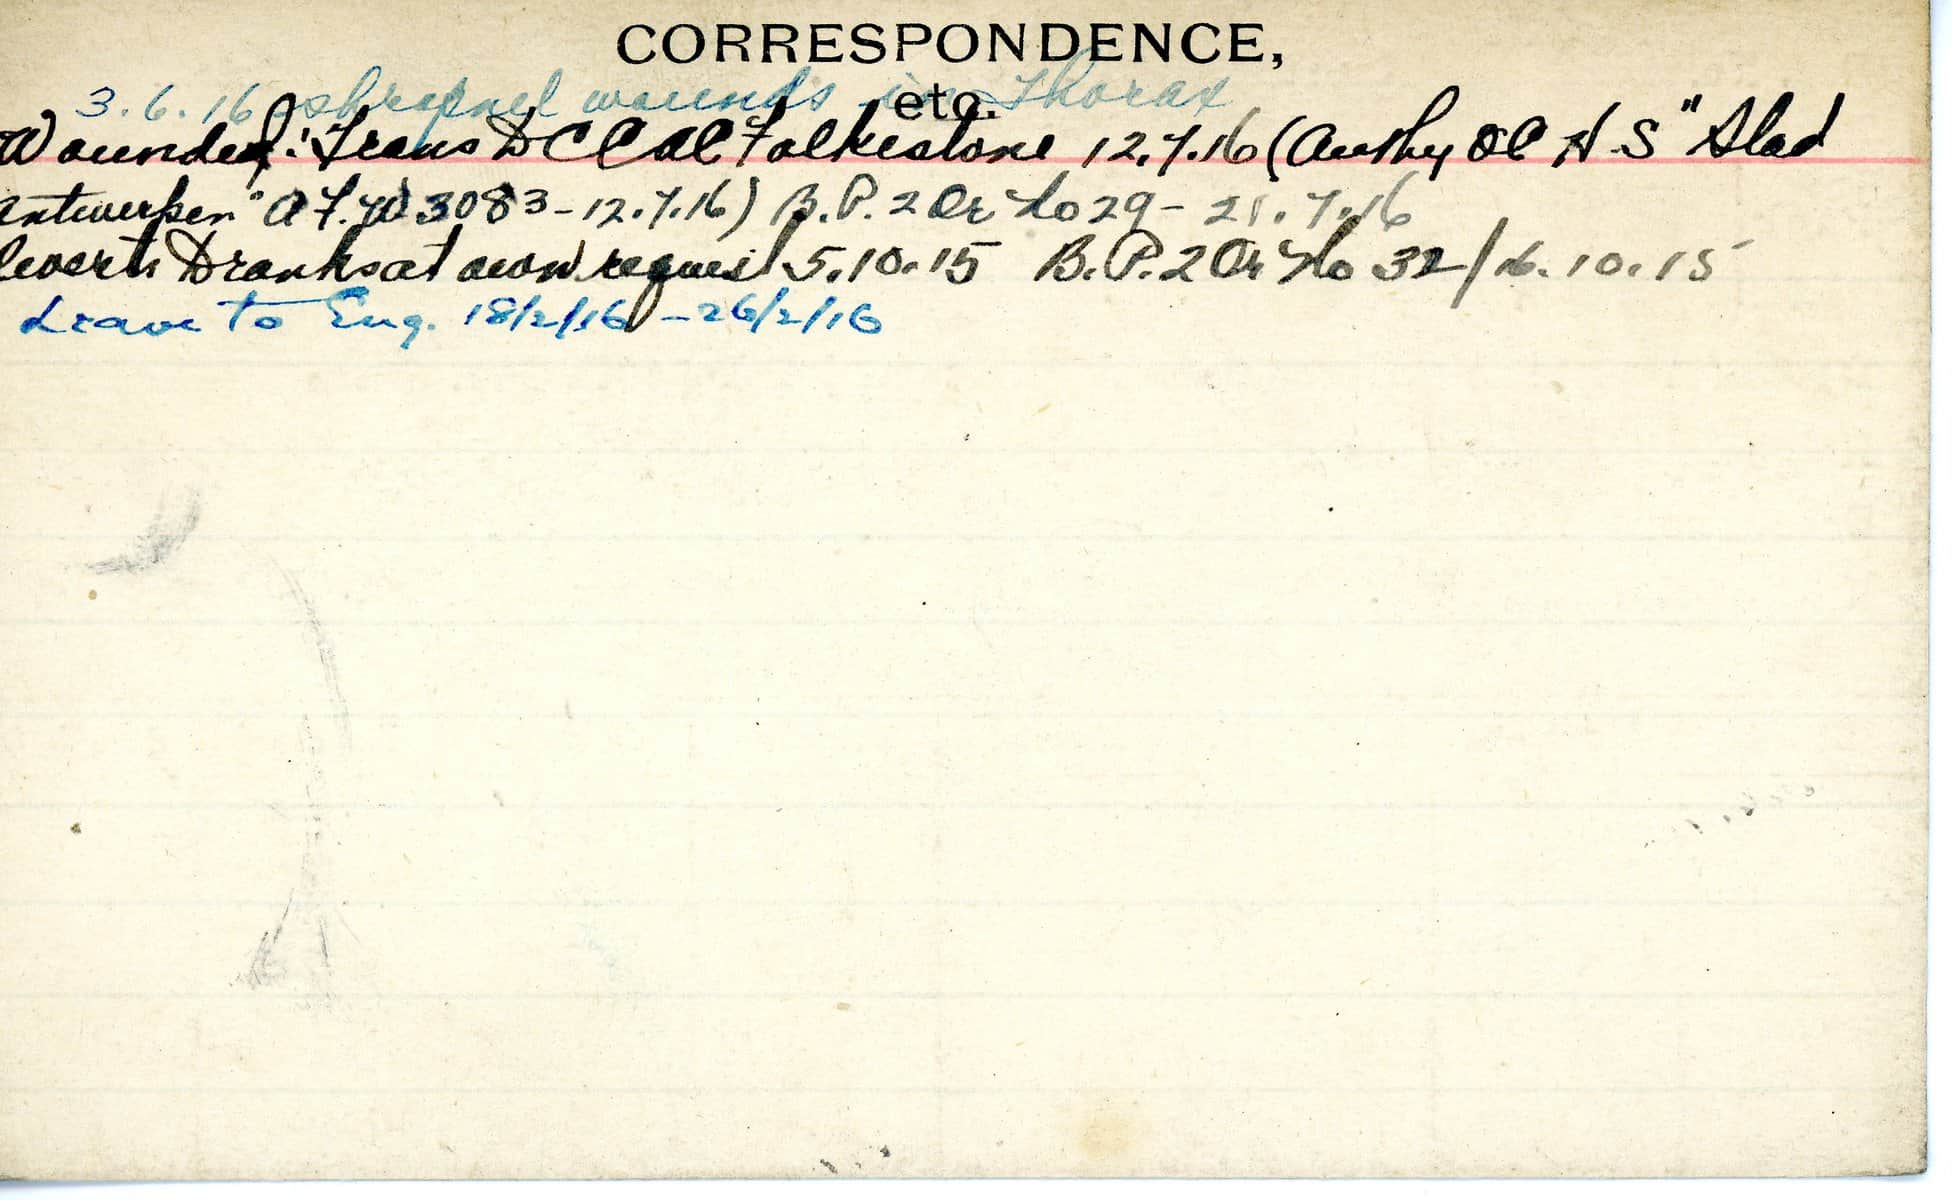 CORRESPONDENCE,
etc.
3.6.16 shrapnel wounds in Thorax
Wounded. Trans D CCAC Folkestone 12.7.16 (Authy OC H S "Stad
Antwerpen" A F. W 3083 - 12.7.16) B.P. 2 Or No 29 - 21.7.16
Reverts D ranks at own request 5.10.15 B.P. 2 Or No 32/16.10.15
Leave to Eng. 18/2/16 - 26/2/16